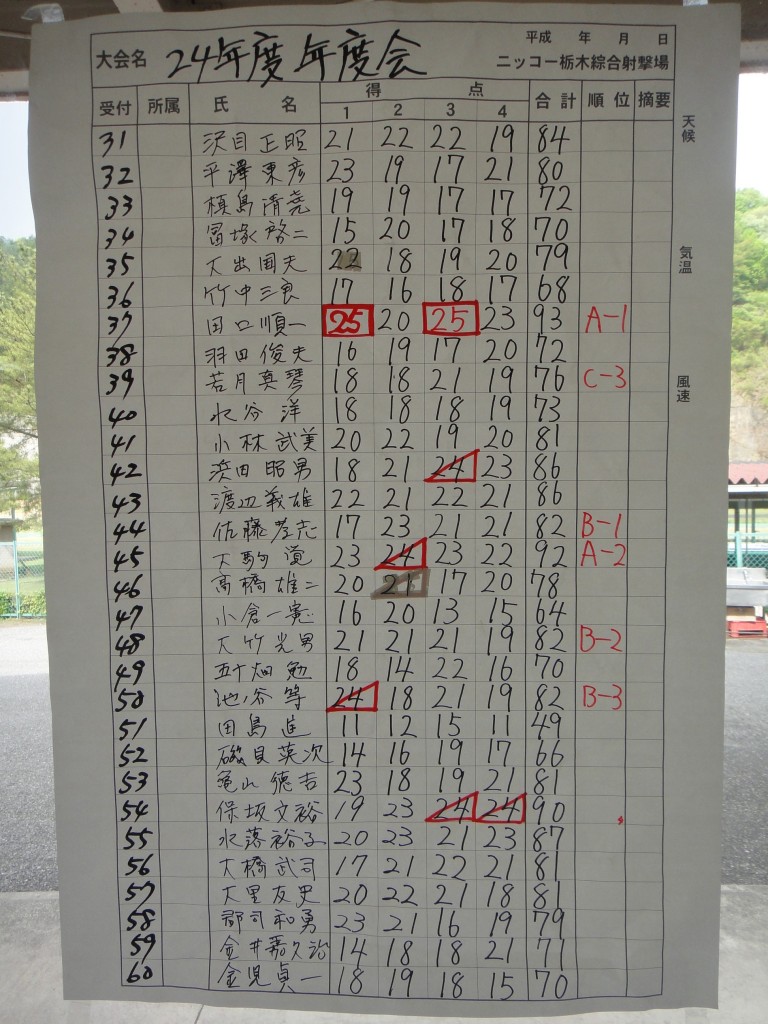 平成 年 月 日
大会名 24年度年度会 ニッコー栃木綜合射撃場
受付 所属 氏 名 得 点 合計 順位 摘要
1 2 3 4
天候
気温
風速
31 沢目正昭 21 22 22 19 84
32 平澤東彦 23 19 17 21 80
33 槙島清堯 19 19 17 17 72
34 冨塚啓二 15 20 17 18 70
35 大出国夫 22 18 19 20 79
36 竹中三良 17 16 18 17 68
37 田口順一 25 20 25 23 93 A-1
38 羽田俊夫 16 19 17 20 72
39 若月真琴 18 18 21 19 76 C-3
40 水谷洋 18 18 18 19 73
41 小林武美 20 22 19 20 81
42 浜田昭男 18 21 24 23 86
43 渡辺義雄 22 21 22 21 86
44 佐藤孝志 17 23 21 21 82 B-1
45 大駒寛 23 24 23 22 92 A-2
46 高橋雄二 20 21 17 20 78
47 小倉一憲 16 20 13 15 64
48 大竹光男 21 21 21 19 82 B-2
49 五十畑勉 18 14 22 16 70
50 池谷等 24 18 21 19 82 B-3
51 田島進 11 12 15 11 49
52 磯貝英次 14 16 19 17 66
53 亀山徳吉 23 18 19 21 81
54 保坂文裕 19 23 24 24 90
55 水落裕子 20 23 21 23 87
56 大橋武司 17 21 22 21 81
57 大里友史 20 22 21 18 81
58 郡司和勇 23 21 16 19 79
59 金井嘉久治 14 18 18 21 71
60 金児貞一 18 19 18 15 70